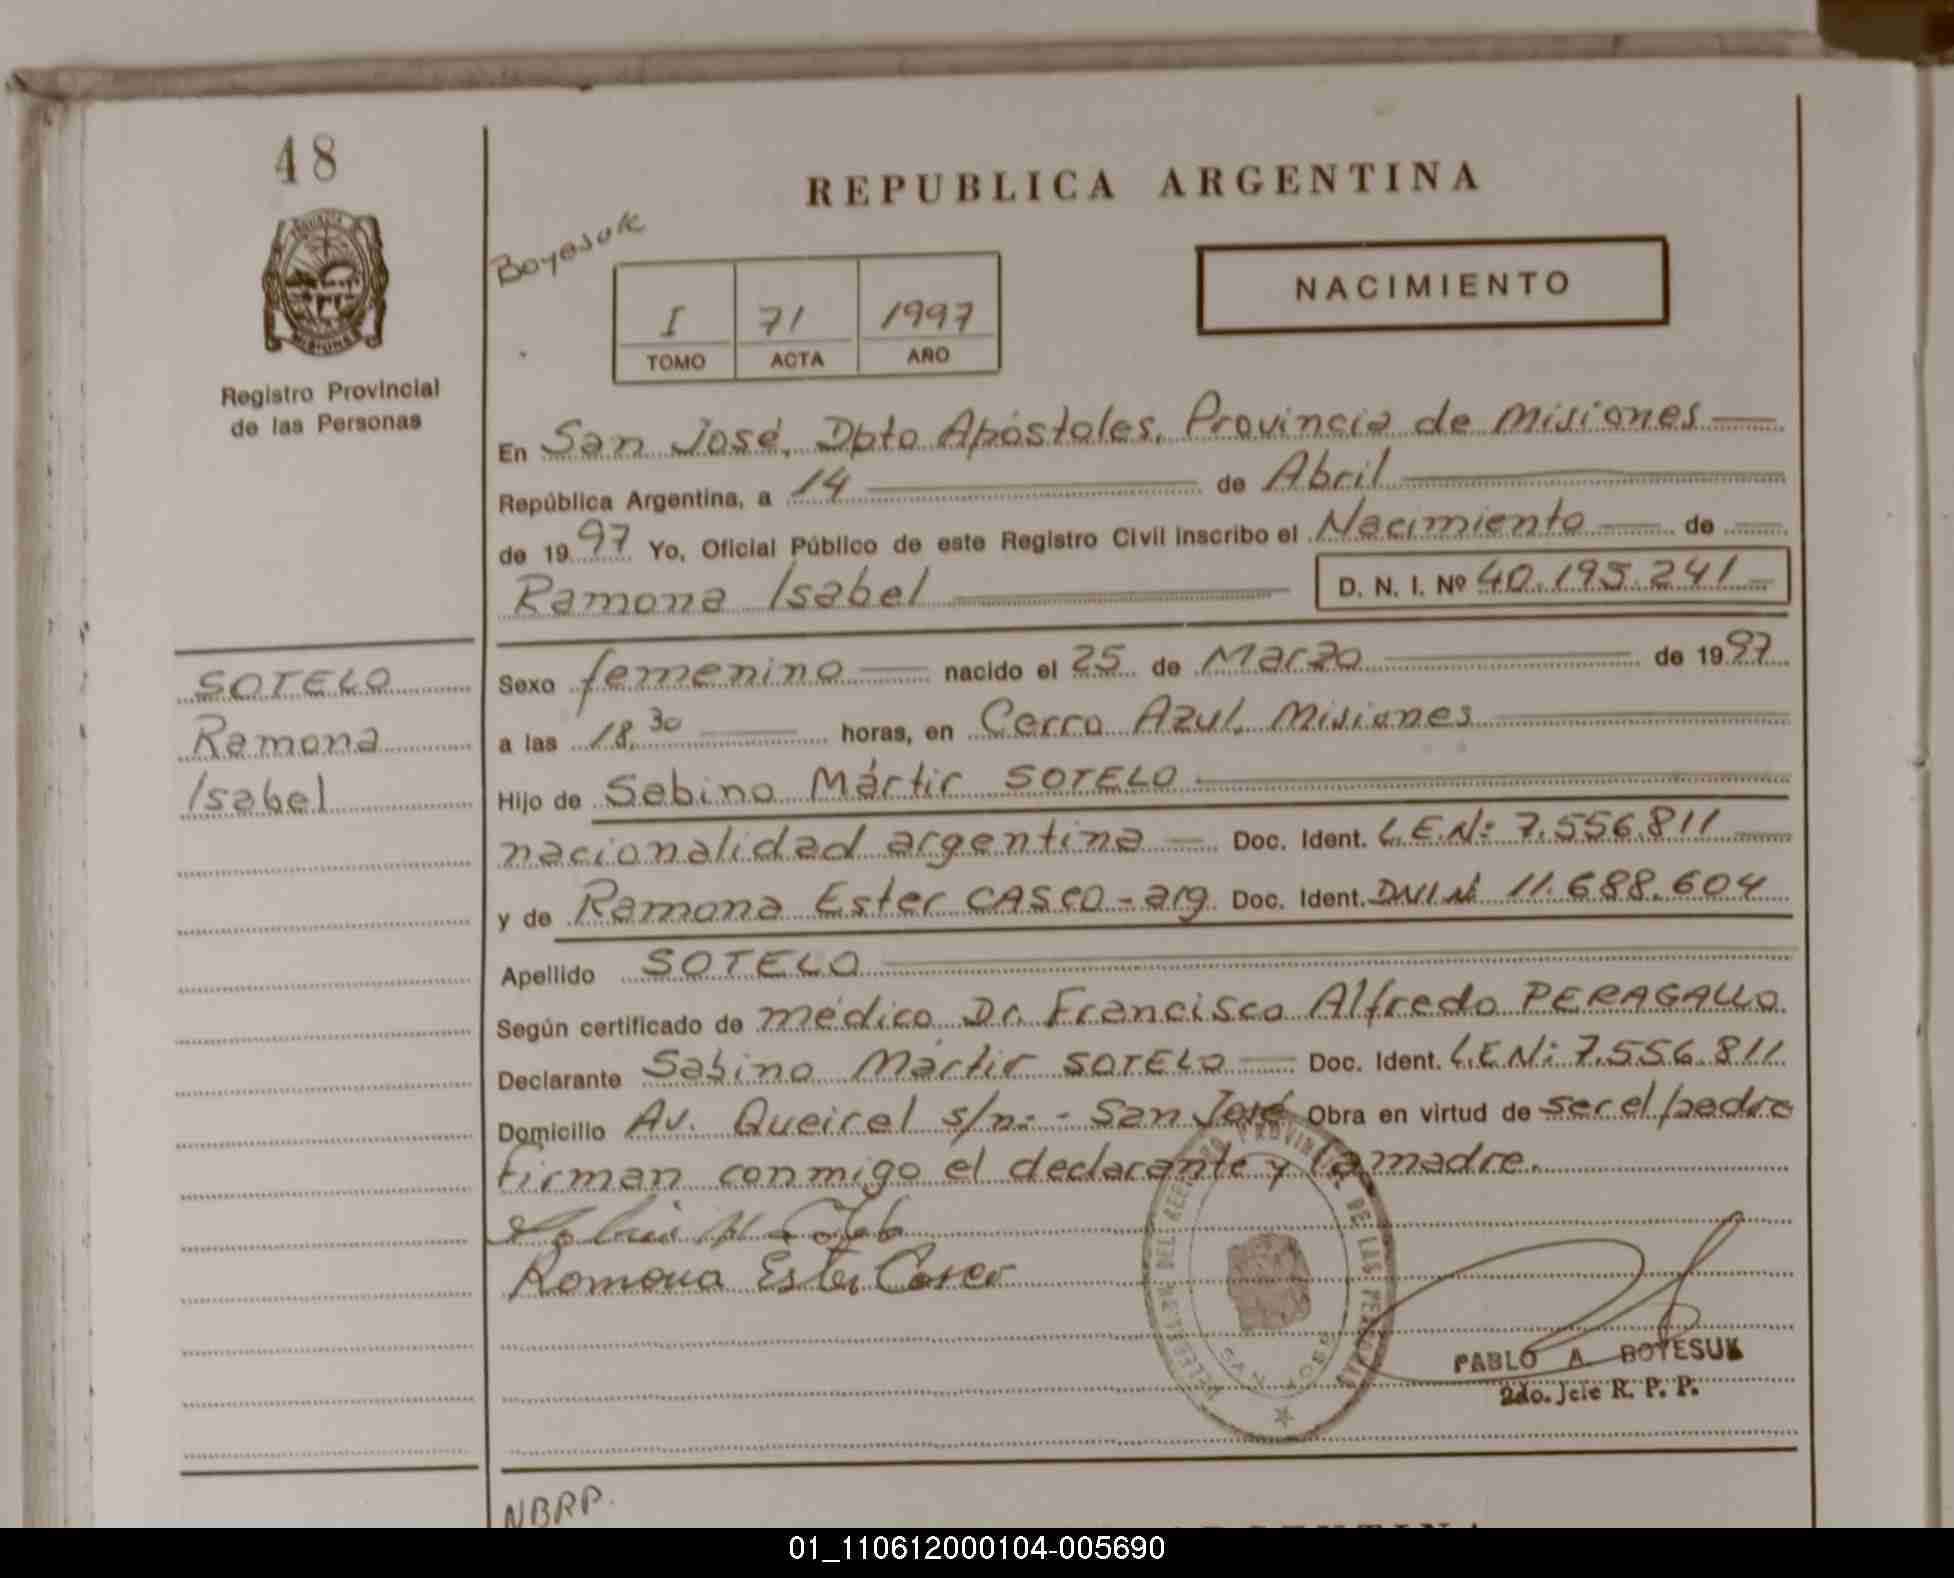 48
REPUBLICA ARGENTINA
Boyesuk
NACIMIENTO
I 71 1997
TOMO ACTA AÑO
Registro Provincial
de las Personas
En San José, Dpto Apóstoles, Provincia de Misiones
República Argentina, a 14 de Abril
de 1997 Yo, Oficial Público de este Registro Civil inscribo el Nacimiento de
Ramona Isabel D. N. I. Nº 40.195.241
SOTELO
Ramona
Isabel
Sexo femenino nacido el 25 de Marzo de 1997
a las 18,30 horas, en Cerro Azul, Misiones
Hijo de Sabino Mártir SOTELO
nacionalidad argentina Doc. Ident. L.E.Nº: 7.556.811
y de Ramona Ester CASCO - arg. Doc. Ident. DNI Nº 11.688.604
Apellido SOTELO
Según certificado de médico Dr. Francisco Alfredo PERAGALLO
Declarante Sabino Mártir SOTELO Doc. Ident. L.E.Nº: 7.556.811
Domicilio Av. Queirel s/n:- San José Obra en virtud de ser el padre
firman conmigo el declarante y la madre.
Ramona Ester Casco
DEL REGISTRO PROVINCIAL DE LAS PERSONAS
SAN JOSE
PABLO A. BOYESUK
2do. Jefe R. P. P.
NBRP.
01_110612000104-005690